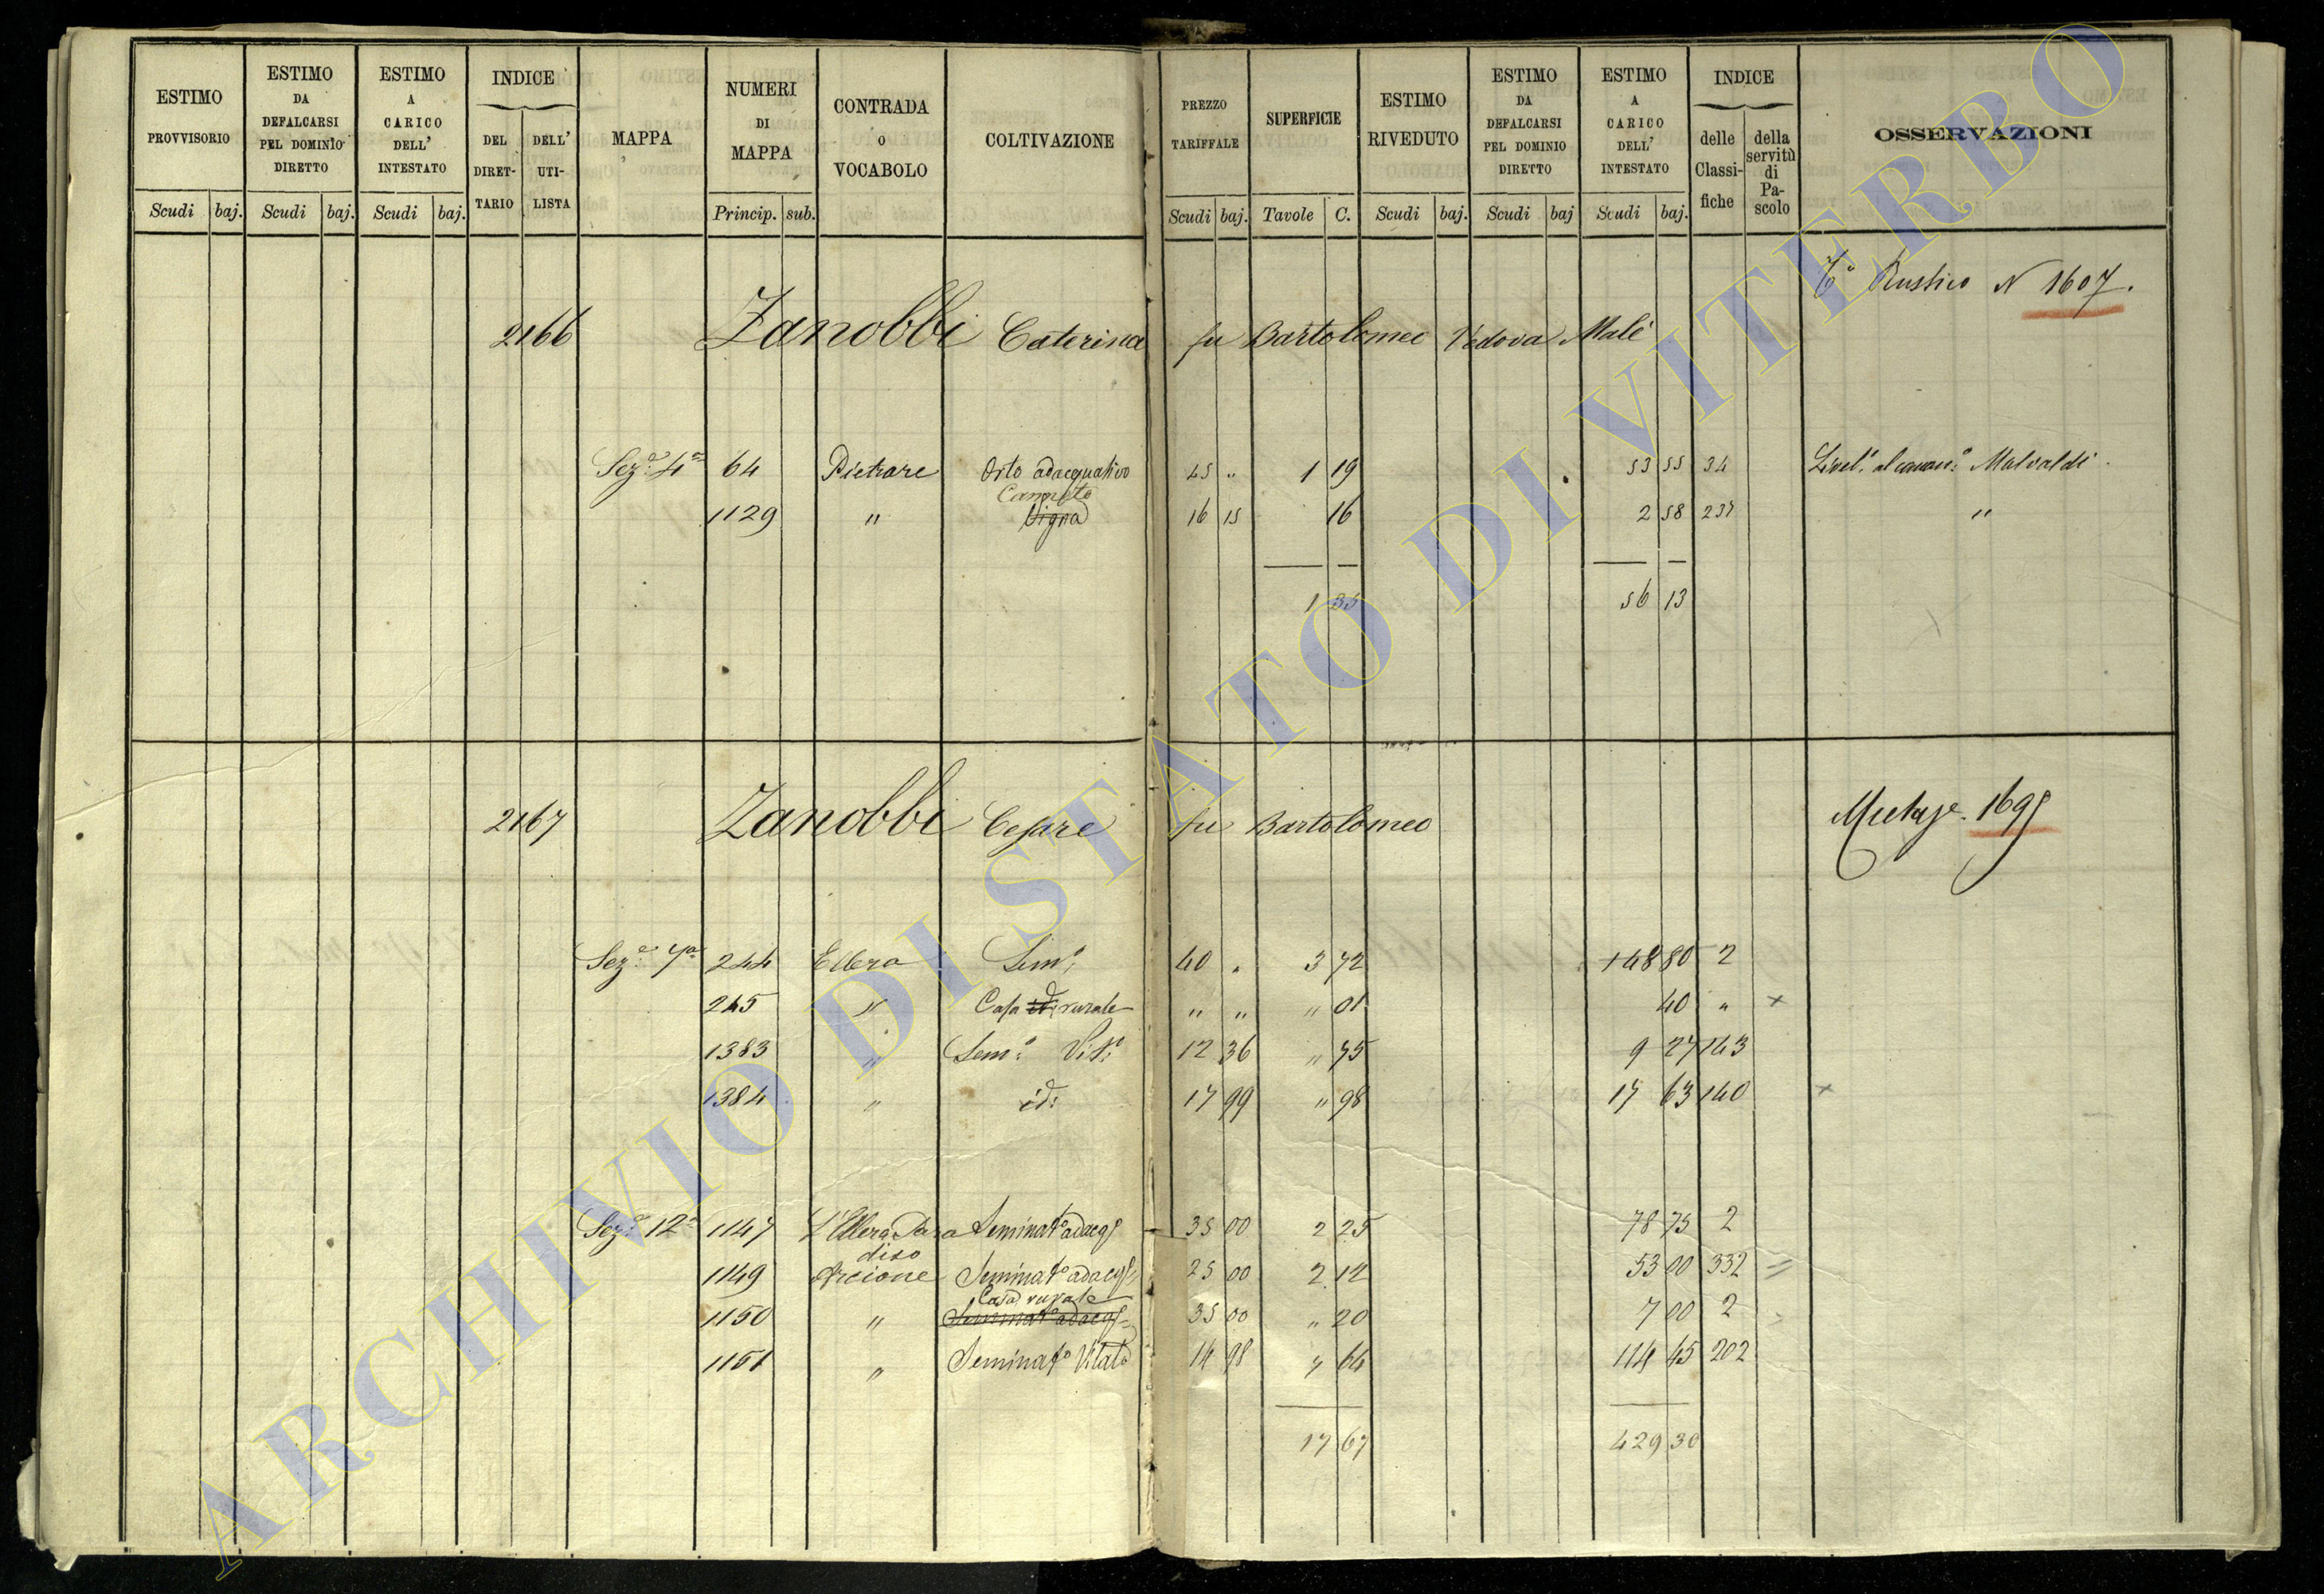 ESTIMO PROVVISORIO
ESTIMO DA DEFALCARSI PEL DOMINIO DIRETTO
ESTIMO A CARICO DELL' INTESTATO
INDICE
DEL DIRET-TARIO
DELL' UTI-LISTA
MAPPA
NUMERI DI MAPPA
CONTRADA O VOCABOLO
COLTIVAZIONE
PREZZO TARIFFALE
SUPERFICIE
ESTIMO RIVEDUTO
ESTIMO DA DEFALCARSI PEL DOMINIO DIRETTO
ESTIMO A CARICO DELL' INTESTATO
INDICE
delle Classi-fiche
della servitù di Pa-scolo
OSSERVAZIONI
Scudi baj. Scudi baj. Scudi baj. Princip. sub. Scudi baj. Tavole C. Scudi baj. Scudi baj Scudi baj.
Rustico N 1607.
2166 Zanobbi Caterina fu Bartolomeo Vedova Malè
Sez.e 4a 64 Pietrare Orto adacquativo 45 " 1 19 53 55 34 Livel.o al canon.o Malvaldi
Canneto
1129 " Vigna 16 15 16 2 58 237 "
1 35 56 13
2167 Zanobbi Cesare fu Bartolomeo 1695
Sez.e 7a 244 Ellera Sem.o 40 " 3 72 148 80 2
245 " Casa id: rurale " " " 01 40 " x
1383 " Sem.o Vit.o 12 36 " 75 9 27 143
1384 " id: 17 99 " 98 17 63 140 x
Sez.e 12a 1147 L'Ellera Para Seminat.o adacq. 35 00 2 25 78 75 2
diso
1149 Arcione Seminat.o adacq. 25 00 2 12 53 00 332 =
Casa rurale
1150 " Seminat.o adacq. 35 00 " 20 7 00 2
1151 " Seminat.o Vitato 14 98 7 64 114 45 202
17 67 429 30
ARCHIVIO DI STATO DI VITERBO